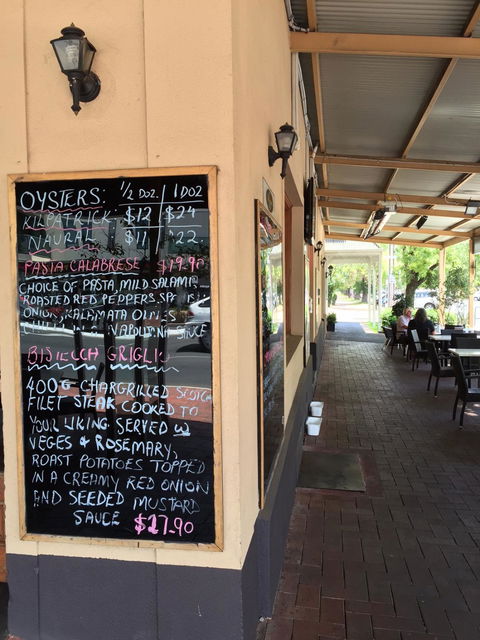 OYSTERS: 1/2 DOZ. 1 DOZ
KILPATRICK $12 $24
NAURAL $11 22
PASTA CALABRESE $19.90
CHOICE OF PASTA, MILD SALAMI,
ROASTED RED PEPPERS,
ONION, KALAMATA OLIVES
NAPOLITANA SAUCE
400G CHARGRILLED SCOTCH
FILET STEAK COOKED TO
YOUR LIKING SERVED W
VEGES & ROSEMARY,
ROAST POTATOES TOPPED
IN A CREAMY RED ONION
AND SEEDED MUSTARD
SAUCE $27.90